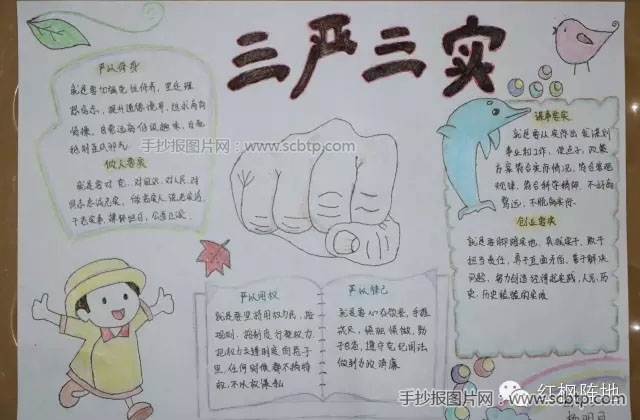 三严三实
严以修身
就是要加强党性修养,坚定理
想信念,提升道德境界,追求高尚
情操,自觉远离低级趣味,自觉
抵制歪风邪气
做人要实
就是要对党、对组织、对人民、对
同志忠诚老实,做老实人、说老实话、
干老实事,襟怀坦白,公道正派。
手抄报图片网:www.scbtp.com
谋事要实
就是要从实际出发谋划
事业和工作,使点子、政策、
方案符合实际情况、符合客观
规律、符合科学精神,不好高
骛远,不脱离实际。
创业要实
就是要脚踏实地、真抓实干,敢于
担当责任,勇于直面矛盾,善于解决
问题,努力创造经得起实践、人民、历
史、历史检验的实绩
严以用权
就是要坚持用权为民,按
规则、按制度行使权力,
把权力关进制度的笼子
里,任何时候都不搞特
权、不以权谋私
严以律己
就是要心存敬畏、手握
戒尺,慎独慎微、勤
于自省,遵守党纪国法
做到为政清廉
红枫阵地
手抄报图片网:www.scbtp.com